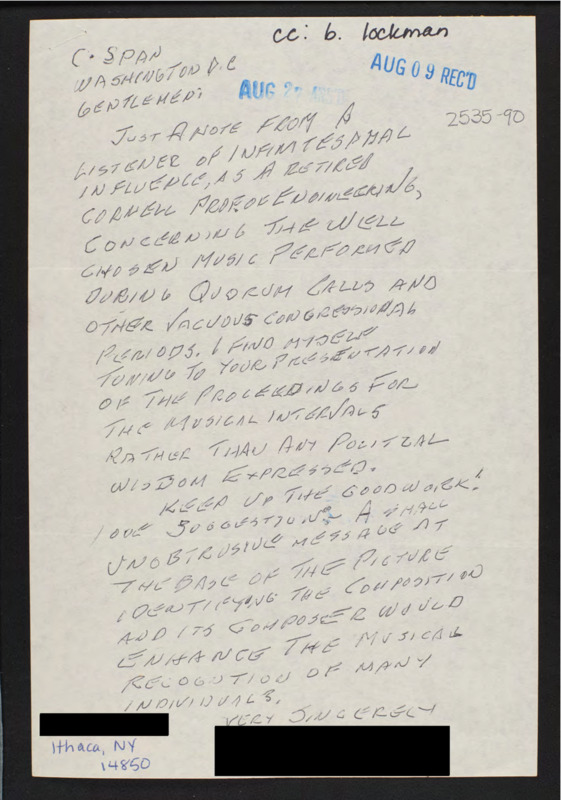 cc: b. lockman
C-SPAN
WASHINGTON D.C
GENTLEMEN:
AUG 2
AUG 09 REC'D
2535-90
JUST A NOTE FROM A
LISTENER OF INFINITESIMAL
INFLUENCE, AS A RETIRED
CORNELL PROF. OF ENGINEERING,
CONCERNING THE WELL
CHOSEN MUSIC PERFORMED
DURING QUORUM CALLS AND
OTHER VACUOUS CONGRESSIONAL
PERIODS. I FIND MYSELF
TUNING TO YOUR PRESENTATION
OF THE PROCEEDINGS FOR
THE MUSICAL INTERVALS
RATHER THAN ANY POLITCAL
WISDOM EXPRESSED.
KEEP UP THE GOOD WORK!
ONE SUGGESTION: A SMALL
UNOBTRUSIVE MESSAGE AT
THE BASE OF THE PICTURE
IDENTIFYING THE COMPOSITION
AND ITS COMPOSER WOULD
ENHANCE THE MUSICAL
RECOGNITION OF MANY
INDIVIDUALS.
VERY SINCERELY
Ithaca, NY
14850